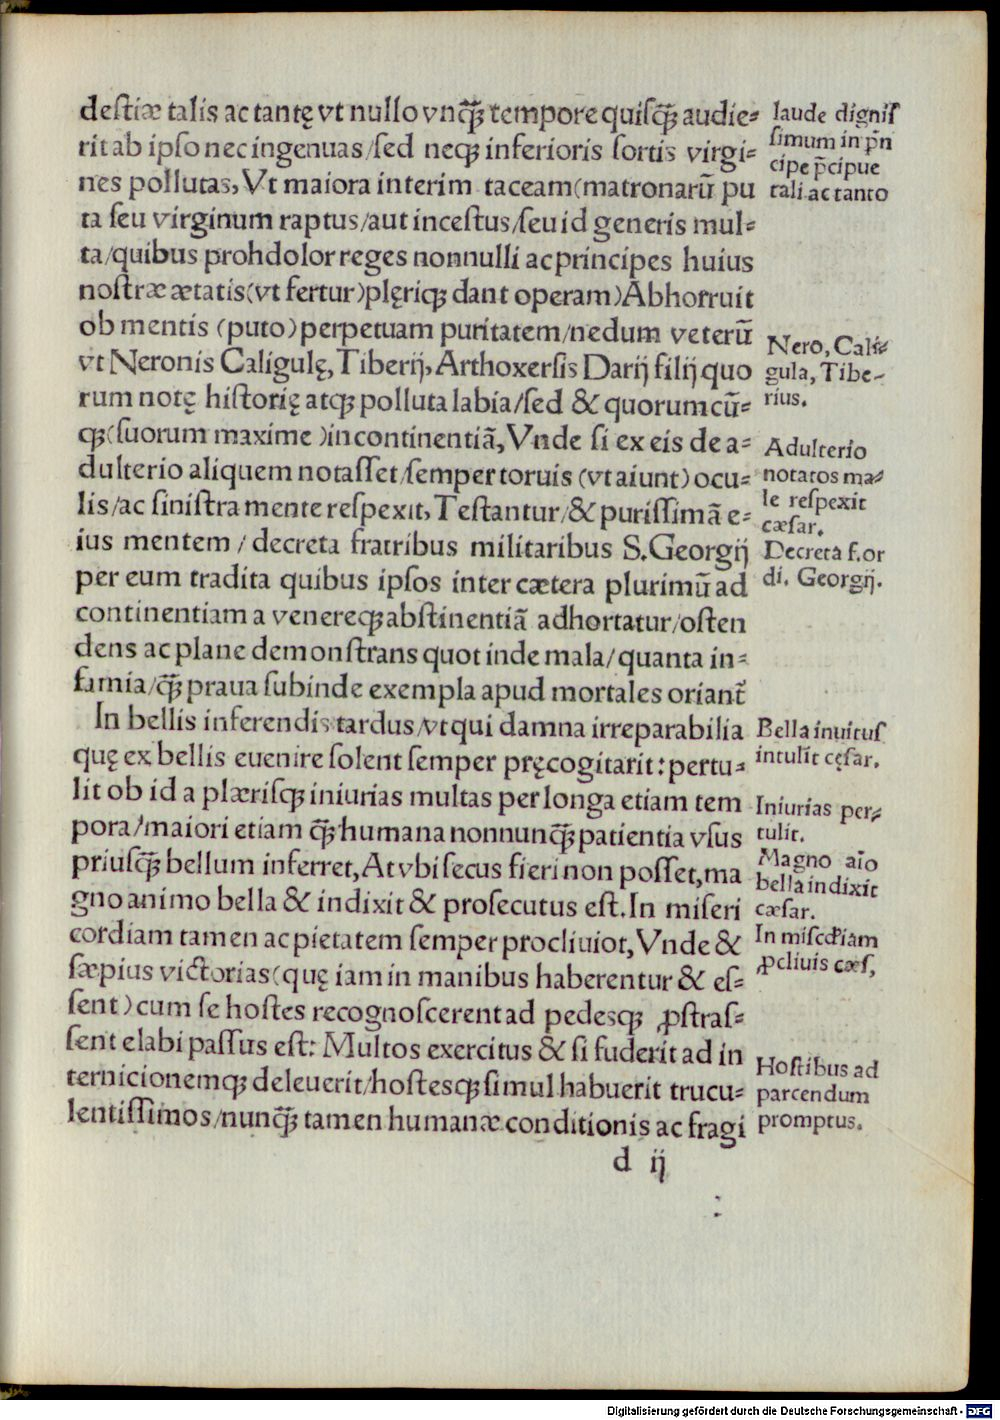 deſtiæ talis ac tantę vt nullo vnq̃ꝫ tempore quiſq̃ꝫ audie⸗
rit ab ipſo nec ingenuas/ſed neqꝫ inferioris ſortis virgi⸗
nes pollutas, Vt maiora interim taceam(matronarũ pu
ta ſeu virginum raptus/aut inceſtus/ſeu id generis mul⸗
ta/quibus prohdolor reges nonnulli ac principes huius
noſtræ ætatis(vt fertur)plęriqꝫ dant operam)Abhorruit
ob mentis (puto) perpetuam puritatem/nedum veterũ
vt Neronis Caligulę, Tiberij, Arthoxerſis Darij filij quo
rum notę hiſtorię atqꝫ polluta labia/ſed & quorumcũ⸗
qꝫ(ſuorum maxime )incontinentiã, Vnde ſi ex eis de a⸗
dulterio aliquem notaſſet/ſemper toruis (vt aiunt) ocu⸗
lis/ac ſiniſtra mente reſpexit, Teſtantur/& puriſſimã e⸗
ius mentem / decreta fratribus militaribus S. Georgij
per eum tradita quibus ipſos inter cætera plurimũ ad
continentiam a venereqꝫ abſtinentiã adhortatur/oſten
dens ac plane demonſtrans quot inde mala/quanta in⸗
famia/q̃ꝫ praua ſubinde exempla apud mortales oriant᷑
In bellis inferendis tardus/vt qui damna irreparabilia
quę ex bellis euenire ſolent ſemper pręcogitarit: pertu⸗
lit ob id a plæriſqꝫ iniurias multas per longa etiam tem
pora/maiori etiam q̃ꝫ humana nonnunq̃ꝫ patientia vſus
priuſq̃ꝫ bellum inferret, At vbi ſecus fieri non poſſet, ma
gno animo bella & indixit & proſecutus eſt. In miſeri
cordiam tamen ac pietatem ſemper procliuiot, Vnde &
ſæpius victorias(quę iam in manibus haberentur & eſ⸗
ſent) cum ſe hoſtes recognoſcerent ad pedesqꝫ ꝓſtraſ⸗
ſent elabi paſſus eſt: Multos exercitus & ſi fuderit ad in
ternicionemqꝫ deleuerit/hoſtesqꝫ ſimul habuerit trucu⸗
lentiſſimos/nunq̃ꝫ tamen humanæ conditionis ac fragi
d ij
laude digniſ
ſimum in pr̃n
cipe p̃cipue
tali ac tanto
Nero, Cali⸗
gula, Tibe⸗
rius.
Adulterio
notatos ma⸗
le reſpexit
cæſar.
Decreta f. or
di. Georgij.
Bella inuituſ
intulit cęſar.
Iniurias per⸗
tulit.
Magno aĩo
bella indixit
cæſar.
In miſcd̃iam
ꝓcliuis cæſ,
Hoſtibus ad
parcendum
promptus.
Digitalisierung gefördert durch die Deutsche Forschungsgemeinschaft - DFG